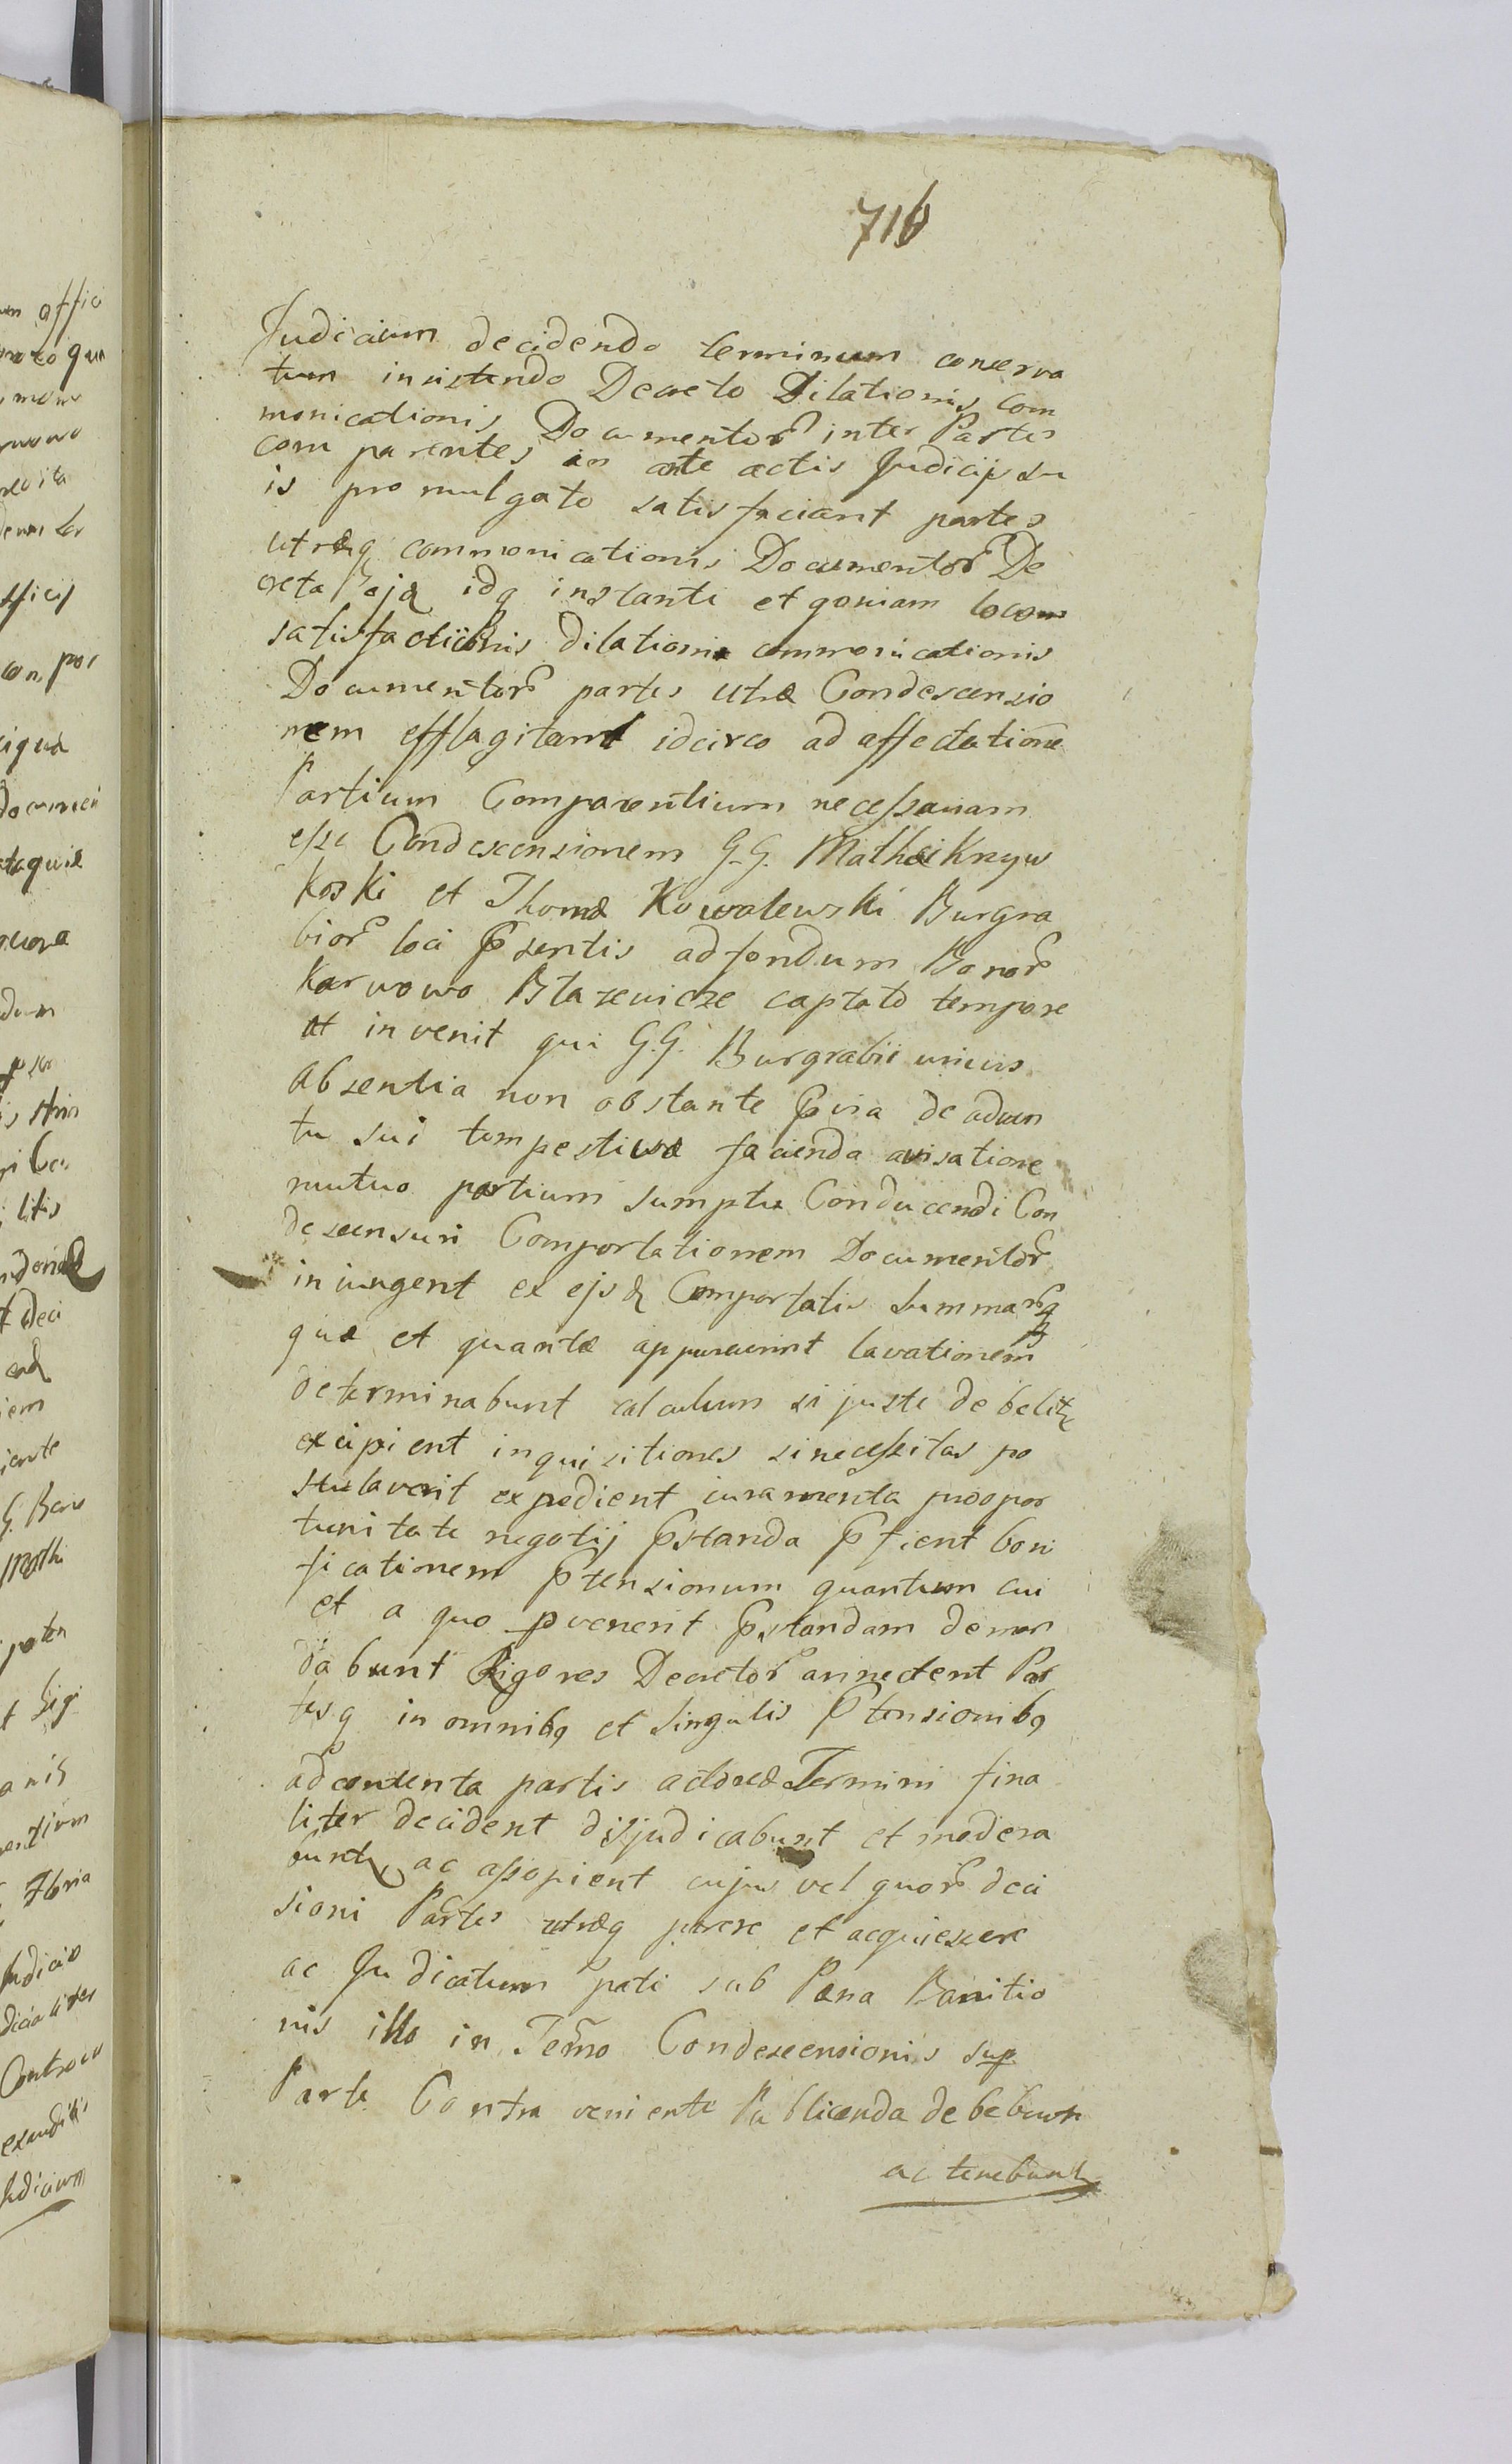 716
Judicium decidendo terminum conserva
tum insistendo Decreto Dilationis com
monicationis Documentor inter Partes
comparentes in ante actis Judicijs su
is promulgato satisfaciant partes
utræq commonicationis Documentor De
creta idq instanti et qoniam locom
satisfactiionis dilationis commonicationis
Documentor partes utræ Condescensio
nem efflagitant idcirco ad affectatione
Partium Comparentium necessariam
esse Condescensionem G.G. Mathæi Krzyw
koski et Thomæ Kowalewski Burgra
bior loci Psentis ad fondum Bonor
Karwowo Blazewicze captato tempore
et invenit qui G.G. Burgrabii unius
absentia non obstante Pvia de adven
tu sui tempestiva facienda avisatione
mutuo partium sumptu Conducendi Con
descensuri Comportationem Documentor
iniungent ex ejsd Comportatis summarq
quæ et quantæ apparuerint lavationem
determinabunt calculum si juste debelit
excipient inquisitiones si necessitas po
stulaverit expedient iuramenta pro opor
tunitate negotij Pstanda Pficient boni
ficationem Ptensionum quantum cui
et a quo pvenerit Pstandam deman
dabunt Rigores Decretor annectent Par
tesq in omnibq et singulis Ptensionibq
ad contenta partis actoreæ Termini fina
liter decident disjudicabunt et modera
buntq ac assopient cujus vel quor deci
sioni Partes utræq parere et acquiescere
ac Judicatum pati sub Pæna Banitio
nis illo in Termo Condescensionis sup
Parte Contra veniente Publicanda debebunt
ac tenebunt